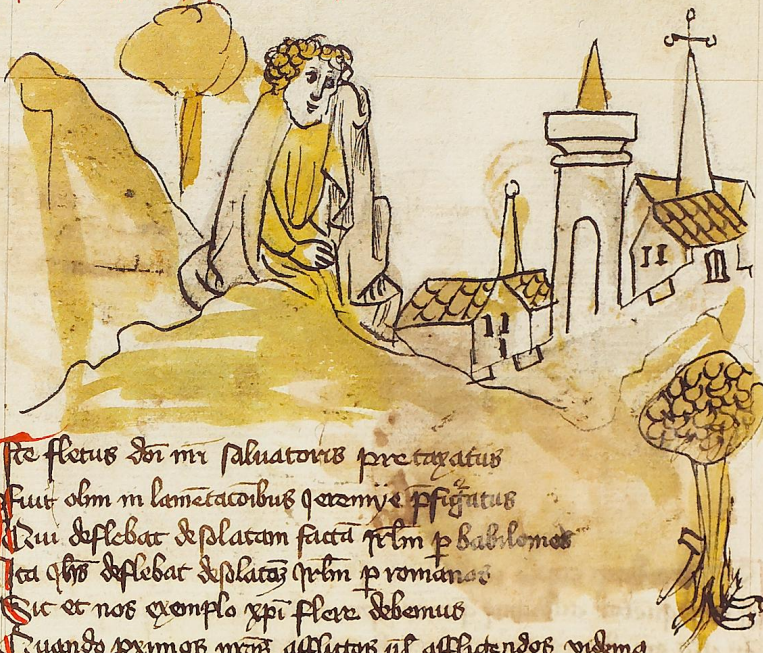 Iste fletus dni nri saluatoris pretaxatus
Fuit olim in lametacoibus Jeremye pfiguratus
Qui deflebat desolatam facta Jrlm p babilonios
Ita Jhs deflebat desolatoz Jrlm p romanos
Sic et nos exemplo xpi flere debemus
Quando pximos nros afflictos ul affligendos videmus